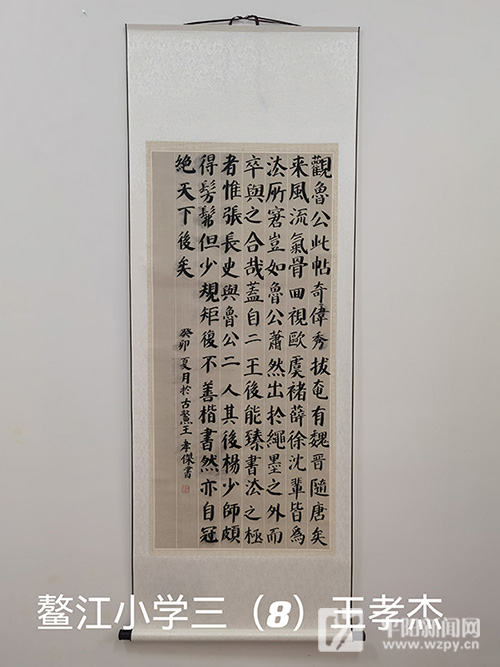 觀魯公此帖奇偉秀拔奄有魏晉隨唐矣
来風流氣骨回視歐虞褚薛徐沈輩皆為
法所窘豈如魯公蕭然出於繩墨之外而
卒與之合哉蓋自二王後能臻書法之極
者惟張長史與魯公二人其後楊少師頗
得髣髴但少規矩復不善楷書然亦自冠
絕天下後矣
癸卯夏月於古鰲王孝傑書
鳌江小学三（8）王孝杰
平阳新闻网
www.wzpy.cn